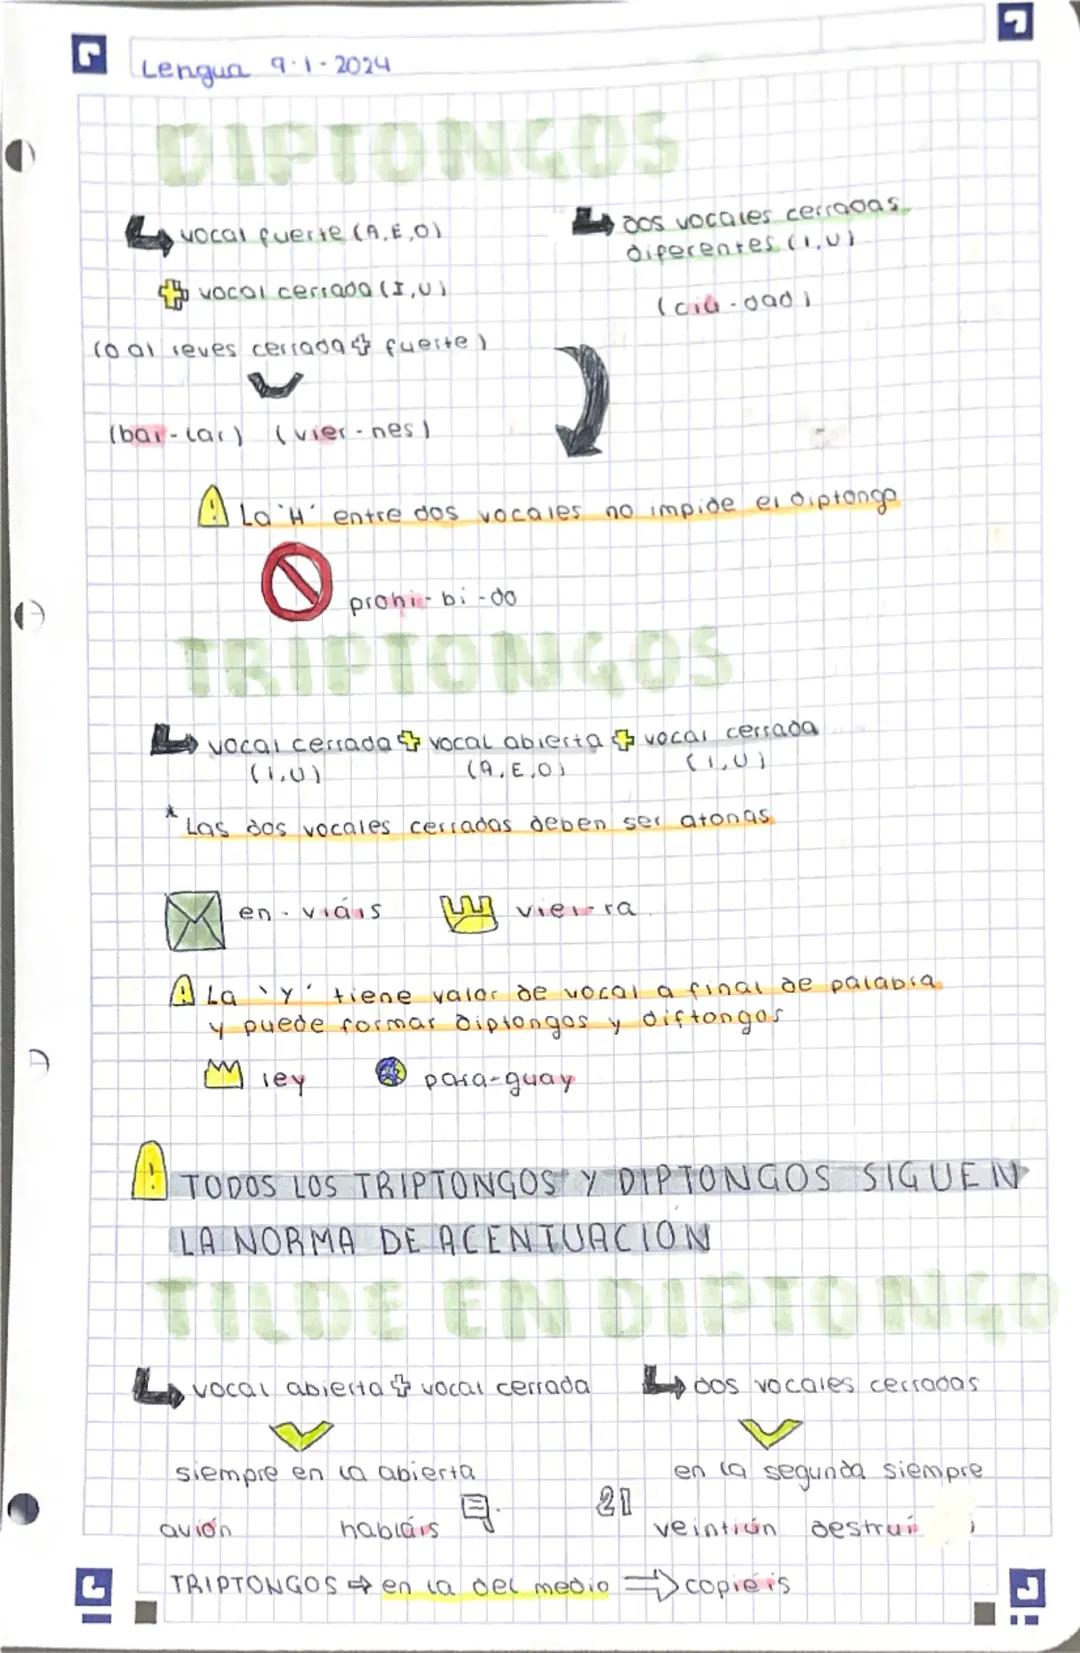 Lengua 9-1-2024
DIPTONGOS
vocal fuerte (A,E,O)
+ vocal cerrada (I,U)
(o al reves cerrada + fuerte)
(bai-lar) (vier-nes)
dos vocales cerradas
diferentes (I,U)
(ciu-dad)
! La 'H' entre dos vocales no impide el diptongo
prohi-bi-do
TRIPTONGOS
vocal cerrada + vocal abierta + vocal cerrada
(I,U) (A,E,O) (I,U)
* Las dos vocales cerradas deben ser atonas
en-viáis viei-ra
! La 'Y' tiene valor de vocal a final de palabra
y puede formar diptongos y diftongos
rey para-guay
! TODOS LOS TRIPTONGOS Y DIPTONGOS SIGUEN
LA NORMA DE ACENTUACION
TILDE EN DIPTONGO
vocal abierta + vocal cerrada
siempre en la abierta
avión habláis
dos vocales cerradas
en la segunda siempre
21
veintiún destruí
TRIPTONGOS ⇒ en la del medio ⇒ copiéis